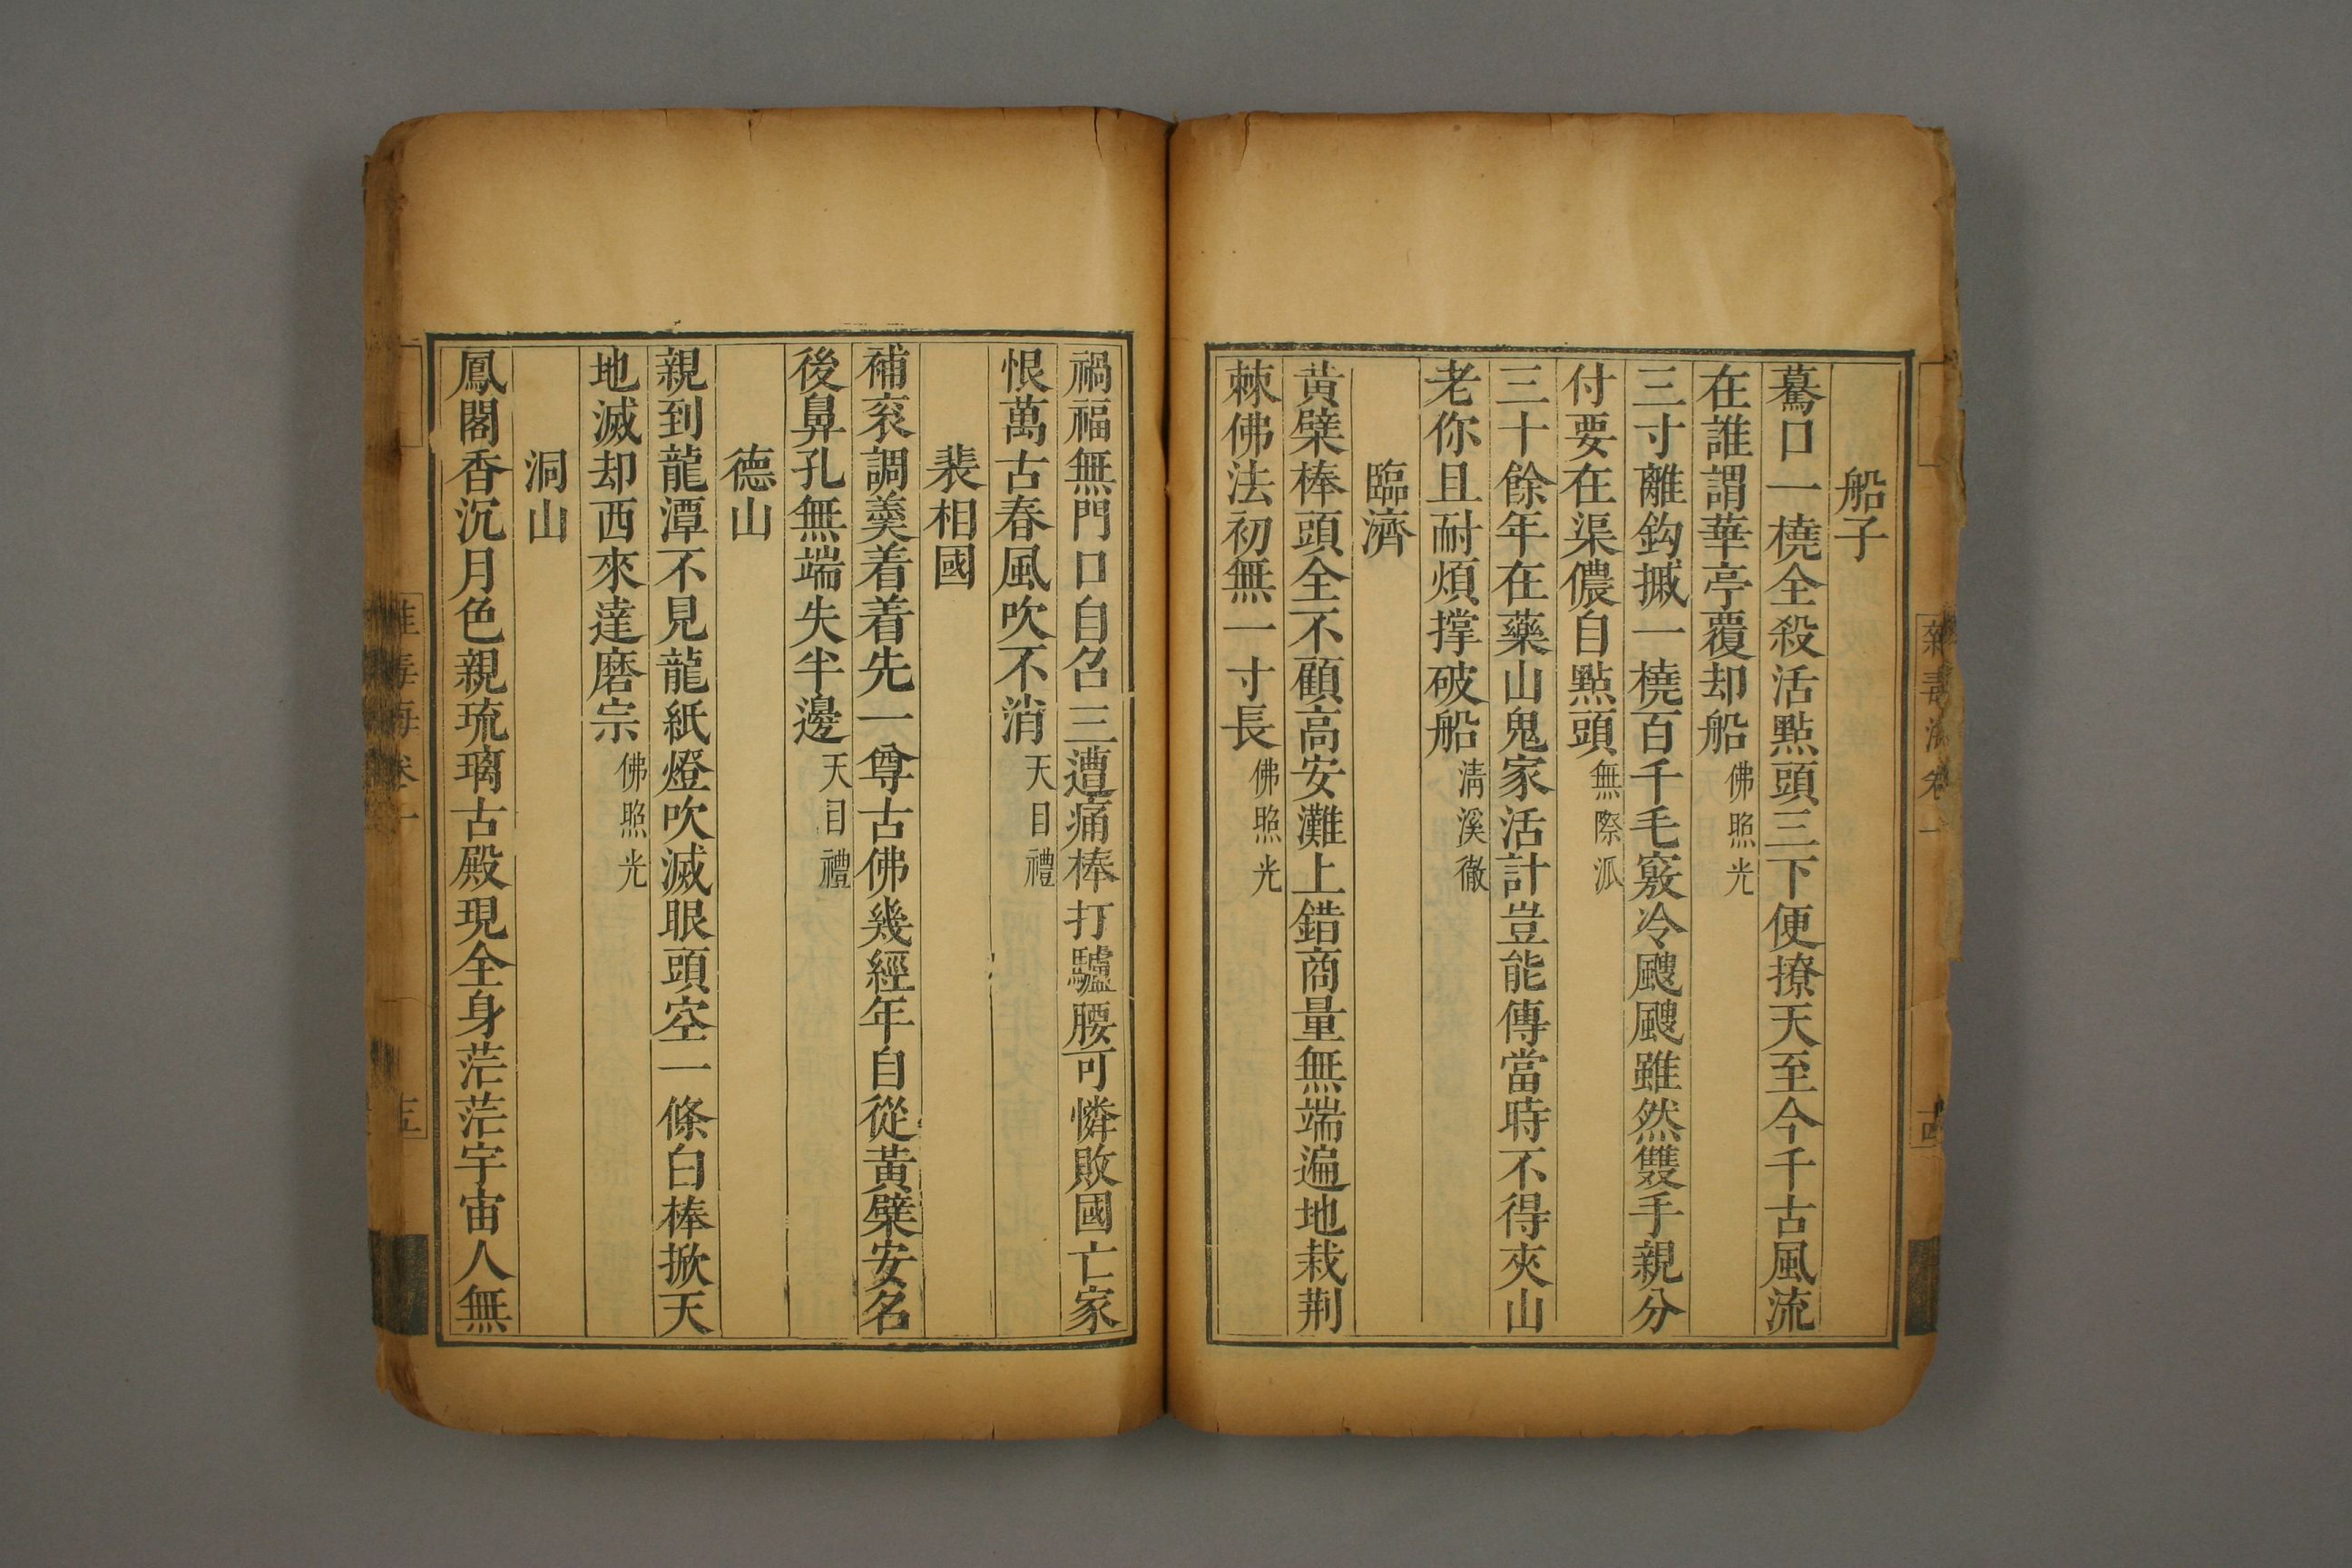 船子
驀口一橈全殺活點頭三下便撩天至今千古風流
在誰謂華亭覆却船 佛照光
三寸離鈎摵一橈百千毛竅冷颼颼雖然雙手親分
付要在渠儂自點頭 無際派
三十餘年在藥山鬼家活計豈能傳當時不得夾山
老你且耐煩撑破船 清溪徹
臨濟
黄檗棒頭全不顧高安灘上錯商量無端遍地栽荆
棘佛法初無一寸長 佛照光
禍福無門口自召三遭痛棒打驢腰可憐敗國亡家
恨萬古春風吹不消 天目禮
裴相國
補衮調羹着着先一尊古佛幾經年自從黃檗安名
後鼻孔無端失半邊 天目禮
德山
親到龍潭不見龍紙燈吹滅眼頭空一條白棒掀天
地滅却西來達磨宗 佛照光
洞山
鳳閣香沉月色親琉璃古殿現全身茫茫宇宙人無